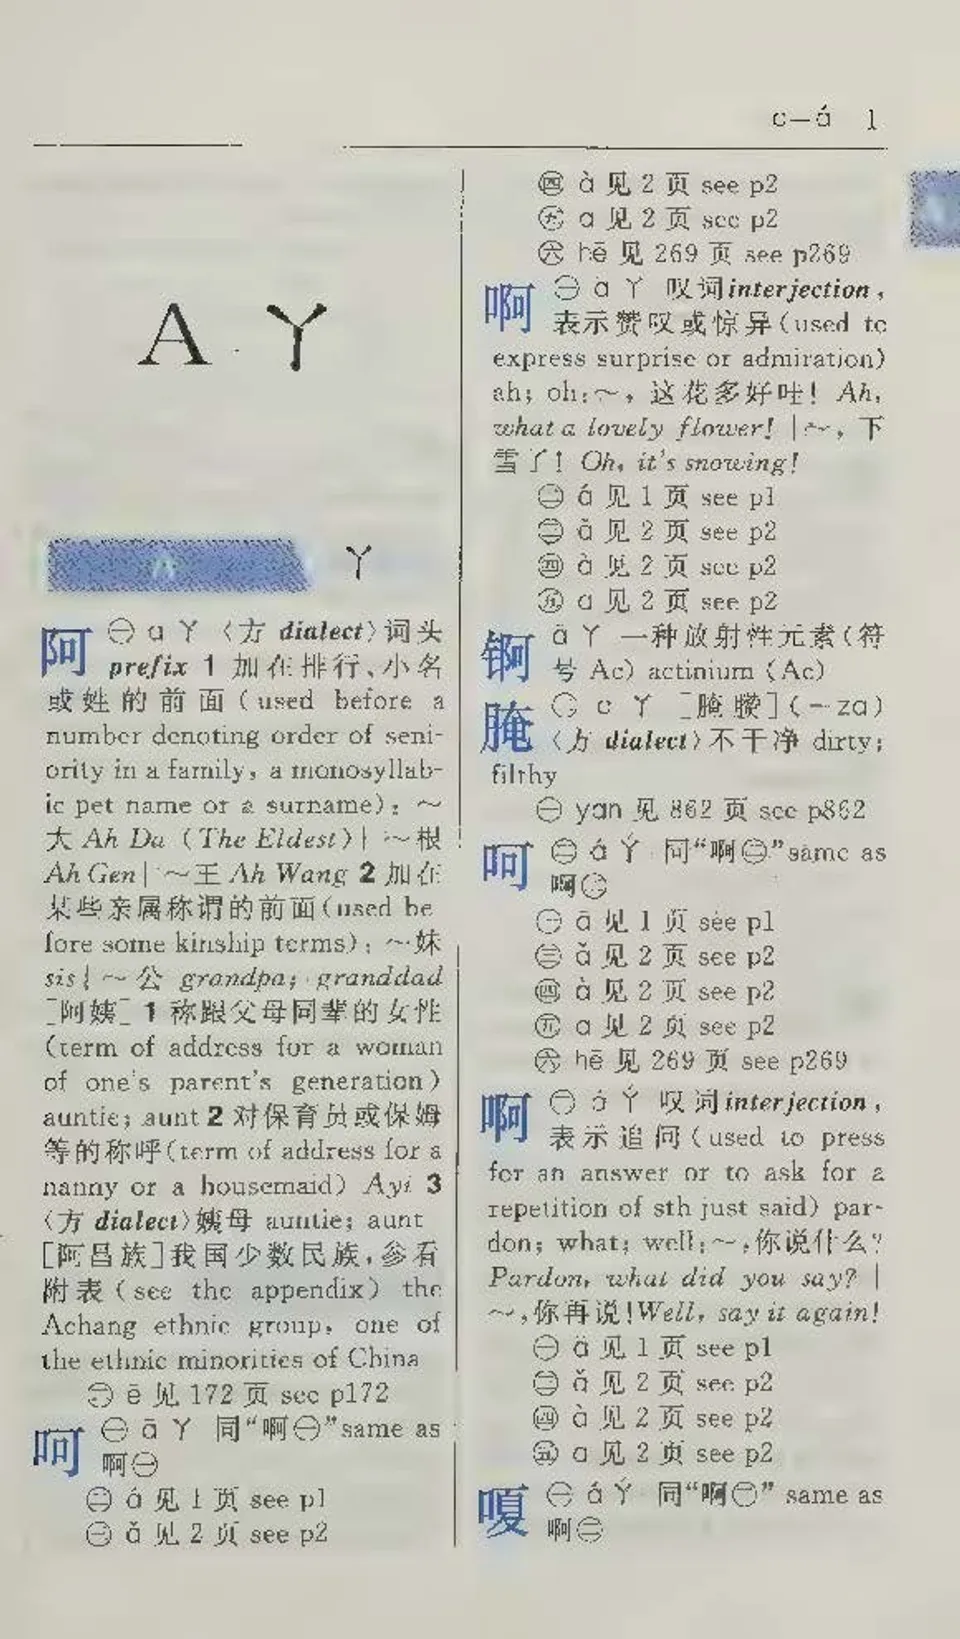 ɑ—á 1
A ㄚ
ㄚ
阿 ㊀ ɑ ㄚ 〈方 dialect〉词头
prefix 1 加在排行、小名
或姓的前面(used before a
number denoting order of seni-
ority in a family, a monosyllab-
ic pet name or a surname): ～
大 Ah Da (The Eldest)| ～根
Ah Gen| ～王 Ah Wang 2 加在
某些亲属称谓的前面(used be
fore some kinship terms): ～妹
sis| ～公 grandpa; granddad
[阿姨] 1 称跟父母同辈的女性
(term of address for a woman
of one's parent's generation)
auntie; aunt 2 对保育员或保姆
等的称呼(term of address for a
nanny or a housemaid) Ayi 3
〈方 dialect〉姨母 auntie; aunt
[阿昌族]我国少数民族,参看
附表(see the appendix) the
Achang ethnic group, one of
the ethnic minorities of China
㊁ ē 见 172 页 see p172
呵 ㊀ ā ㄚ 同“啊㊀”same as
啊㊀
㊁ á 见 1 页 see p1
㊂ ǎ 见 2 页 see p2
㊃ à 见 2 页 see p2
㊄ ɑ 见 2 页 see p2
㊅ hē 见 269 页 see p269
啊 ㊀ ā ㄚ 叹词interjection,
表示赞叹或惊异(used to
express surprise or admiration)
ah; oh:～, 这花多好哇! Ah,
what a lovely flower! |～, 下
雪了! Oh, it's snowing!
㊁ á 见 1 页 see p1
㊂ ǎ 见 2 页 see p2
㊃ à 见 2 页 see p2
㊄ ɑ 见 2 页 see p2
锕 ā ㄚ 一种放射性元素(符
号 Ac) actinium (Ac)
腌 ㊀ ɑ ㄚ [腌臜](－zɑ)
〈方 dialect〉不干净 dirty;
filthy
㊁ yɑn 见 862 页 see p862
呵 ㊁ á ㄚˊ 同“啊㊁”same as
啊㊁
㊀ ā 见 1 页 see p1
㊂ ǎ 见 2 页 see p2
㊃ à 见 2 页 see p2
㊄ ɑ 见 2 页 see p2
㊅ hē 见 269 页 see p269
啊 ㊁ á ㄚˊ 叹词interjection,
表示追问(used to press
for an answer or to ask for a
repetition of sth just said) par-
don; what; well:～,你说什么?
Pardon, what did you say? |
～,你再说!Well, say it again!
㊀ ā 见 1 页 see p1
㊂ ǎ 见 2 页 see p2
㊃ à 见 2 页 see p2
㊄ ɑ 见 2 页 see p2
嗄 ㊀ á ㄚˊ 同“啊㊁” same as
啊㊁